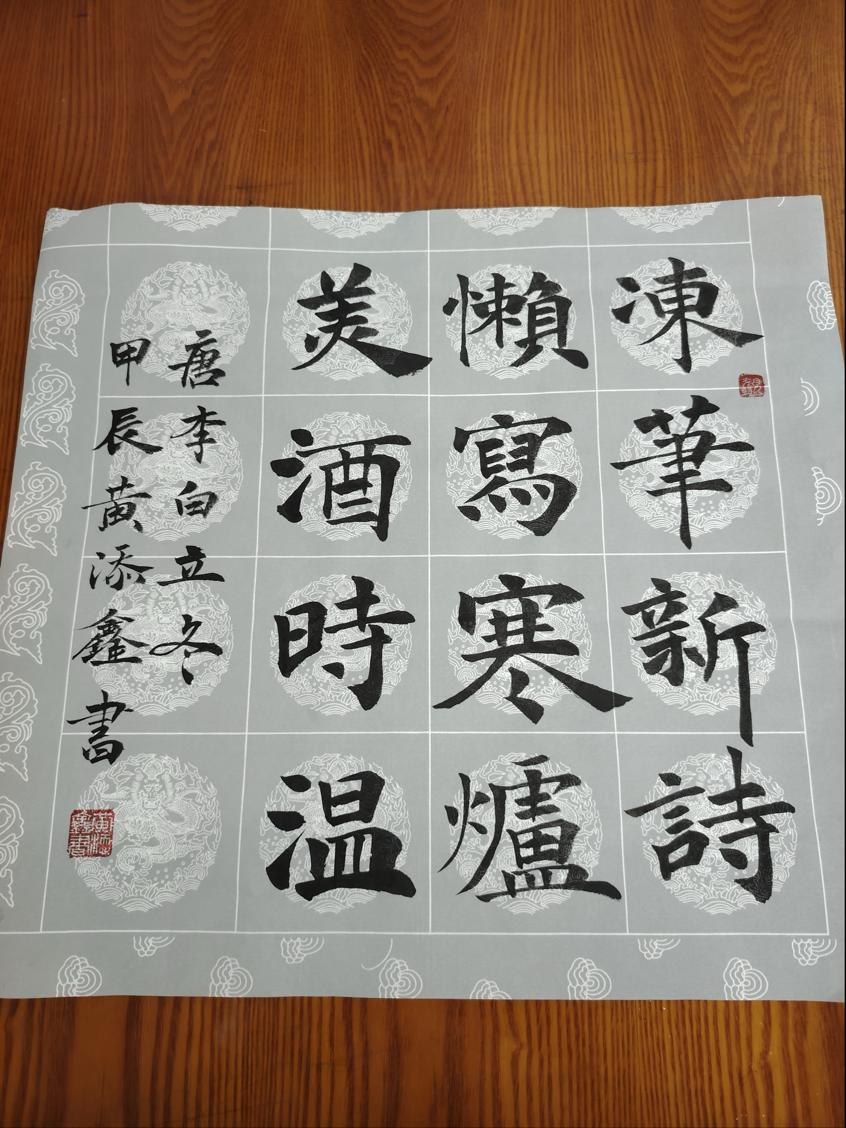 凍筆新詩
懶寫寒爐
美酒時温
唐李白立冬
甲辰黃添鑫書